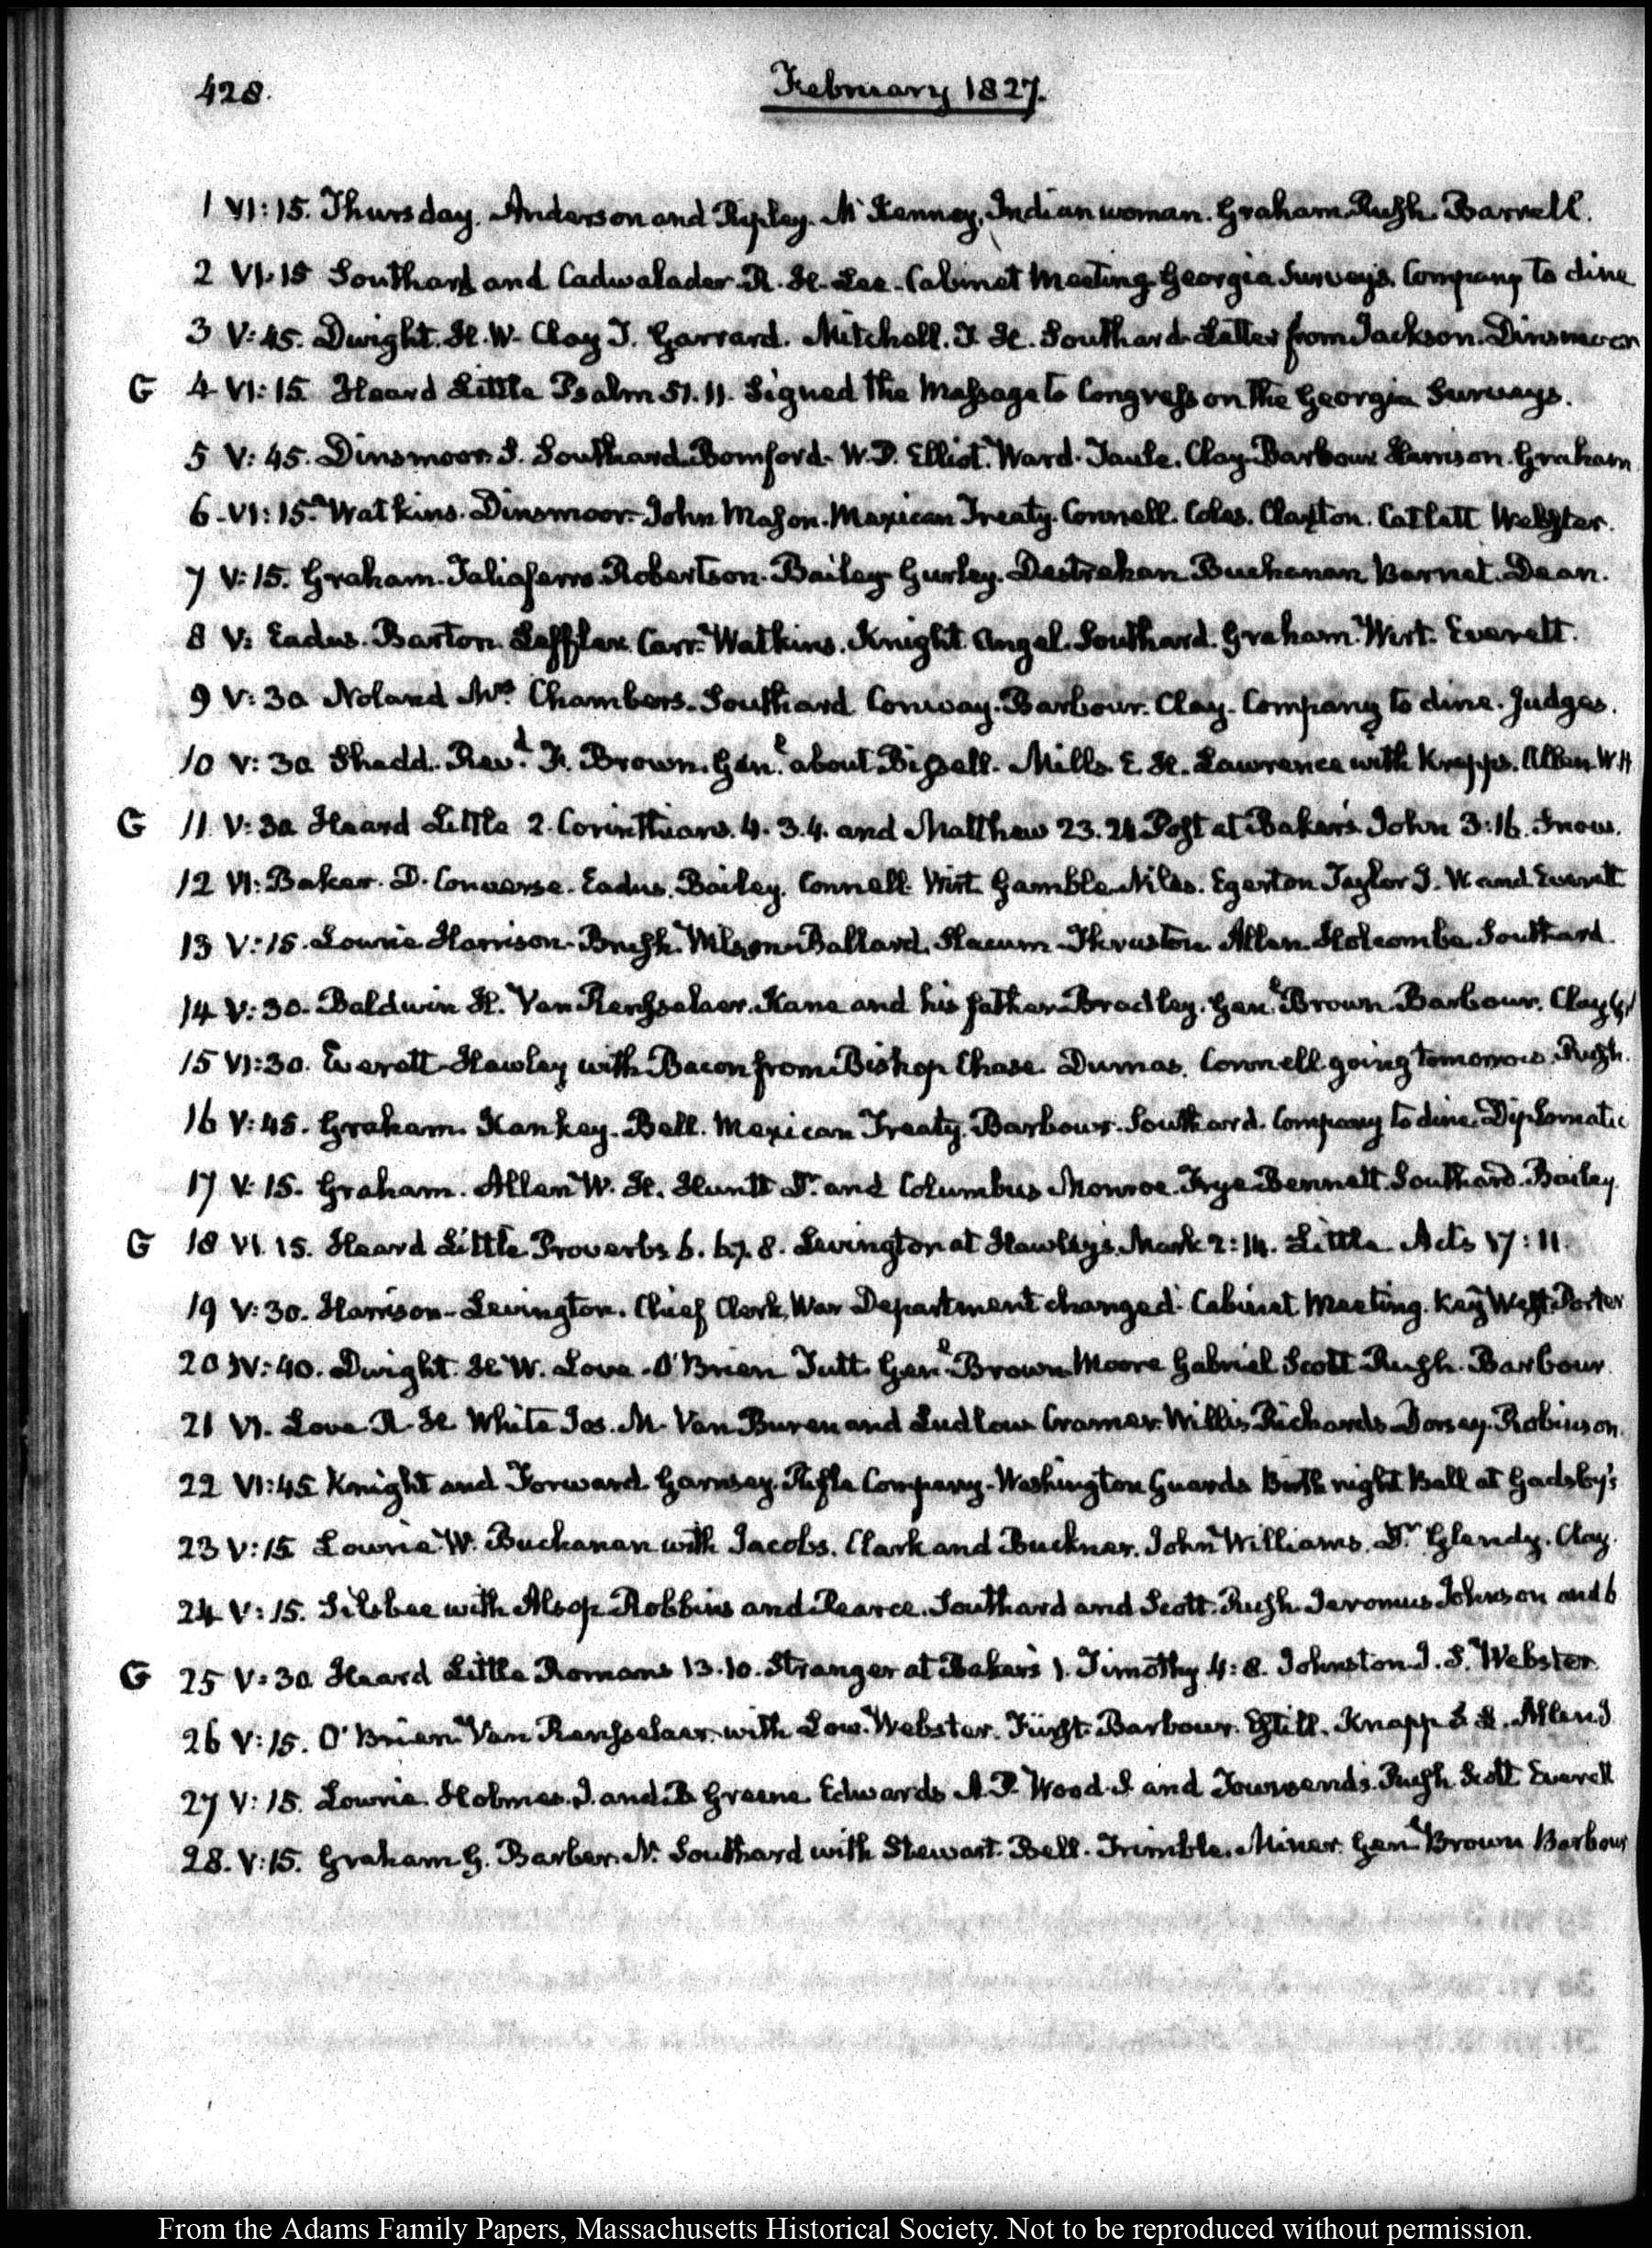 428.
February 1827.
1 VI:15. Thursday. Anderson and Ripley. McKenney, Indian woman. Graham. Rush. Barrell.
2 VI:15 Southard and Cadwalader. R. H. Lee. Cabinet Meeting. Georgia Surveys. Company to dine
3 V:45. Dwight. H. W. Clay J. Garrard. Mitchell. J. H. Southard. Letter from Jackson. Dinsmoor
G 4 VI:15 Heard Little Psalm 51.11. Signed the Message to Congress on the Georgia Surveys.
5 V:45. Dinsmoor S. Southard. Bomford. W. P. Elliot. Ward. Clay. Barbour Harrison. Graham
6 VI:15. Watkins. Dinsmoor. John Mason. Mexican Treaty. Connell. Coles. Clayton. Catlett Webster.
7 V:15. Graham. Taliaferro. Robertson. Bailey Gurley. Destrehan Buchanan Barnet. Dean.
8 V: Eadus. Barton. Leffler. Carr. Watkins. Knight. Angel. Southard. Graham. Wirt. Everett.
9 V:30 Noland Mrs. Chambers. Southard Conway. Barbour. Clay. Company to dine. Judges.
10 V:30 Shadd. Revd. Brown. Genl. about Bissell. Mills. E. H. Lawrence with Krepps. Allen. W. H
G 11 V:30 Heard Little 2. Corinthians. 4. 3.4. and Matthew 23.24 Post at Baker's. John 3:16. Snow.
12 VI: Baker. D. Converse. Eadus. Bailey. Connell. Wirt. Gamble. Niles. Egerton Taylor J. W. and Everett
13 V:15. Lowrie Harrison. Brush. Wilson. Ballard. Slacum. Thruston. Allen. Holcombe. Southard.
14 V:30. Baldwin H. Van Rensselaer. Kane and his father. Bradley. Genl. Brown. Barbour. Clay
15 VI:30. Everett. Hawley with Bacon from Bishop Chase. Dumas. Connell going tomorrow. Rush.
16 V:45. Graham. Kankey. Bell. Mexican Treaty. Barbour. Southard. Company to dine. Diplomatic
17 V:15. Graham. Allen W. H. Huntt Dr. and Columbus Monroe. Frye Bennett. Southard. Bailey
G 18 VI.15. Heard Little Proverbs 6. 6.7.8. Levington at Hawley's. Mark 2:14. Little Acts 17:11.
19 V:30. Harrison. Levington. Chief Clerk, War Department changed. Cabinet Meeting. Key West. Porter
20 IV:40. Dwight. H. W. Love. O'Brien Tutt. Genl. Brown Moore Gabriel Scott Rush. Barbour.
21 VI. Love R. H. White Jos. M. Van Buren and Ludlow Cramer. Willis Richards Dorsey. Robinson.
22 VI:45 Knight and Forward Garnsey. Rifle Company. Washington Guards Birth night Ball at Gadsby's
23 V:15 Lowrie W. Buchanan with Jacobs. Clark and Buckner. John Williams. Dr. Glendy. Clay.
24 V:15. Silsbee with Alsop. Robbins and Pearce. Southard and Scott. Rush. Jeromus Johnson and 6
G 25 V:30 Heard Little Romans 13.10. Stranger at Baker's 1. Timothy 4:8. Johnston J. S. Webster.
26 V:15. O'Brien. Van Rensselaer with Low. Webster. Fürst. Barbour. Estill. Knapp S. L. Allen J
27 V:15. Lowrie. Holmes J. and B. Greene. Edwards A. P. Wood S. and Townsends. Rush. Scott Everett
28. V:15. Graham G. Barber. N. Southard with Stewart. Bell. Trimble. Miner. Genl. Brown Barbour
From the Adams Family Papers, Massachusetts Historical Society. Not to be reproduced without permission.